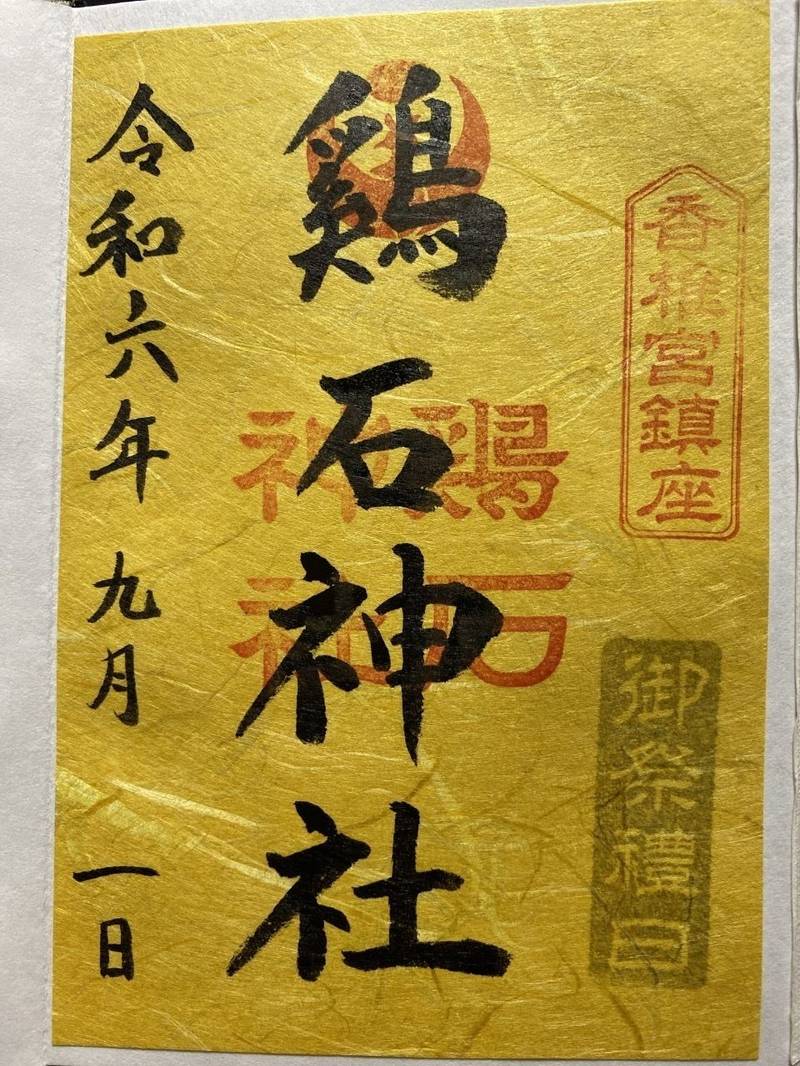 香椎宮鎮座
御祭禮日
鶏石神社
鶏石
神社
令和六年 九月 一日